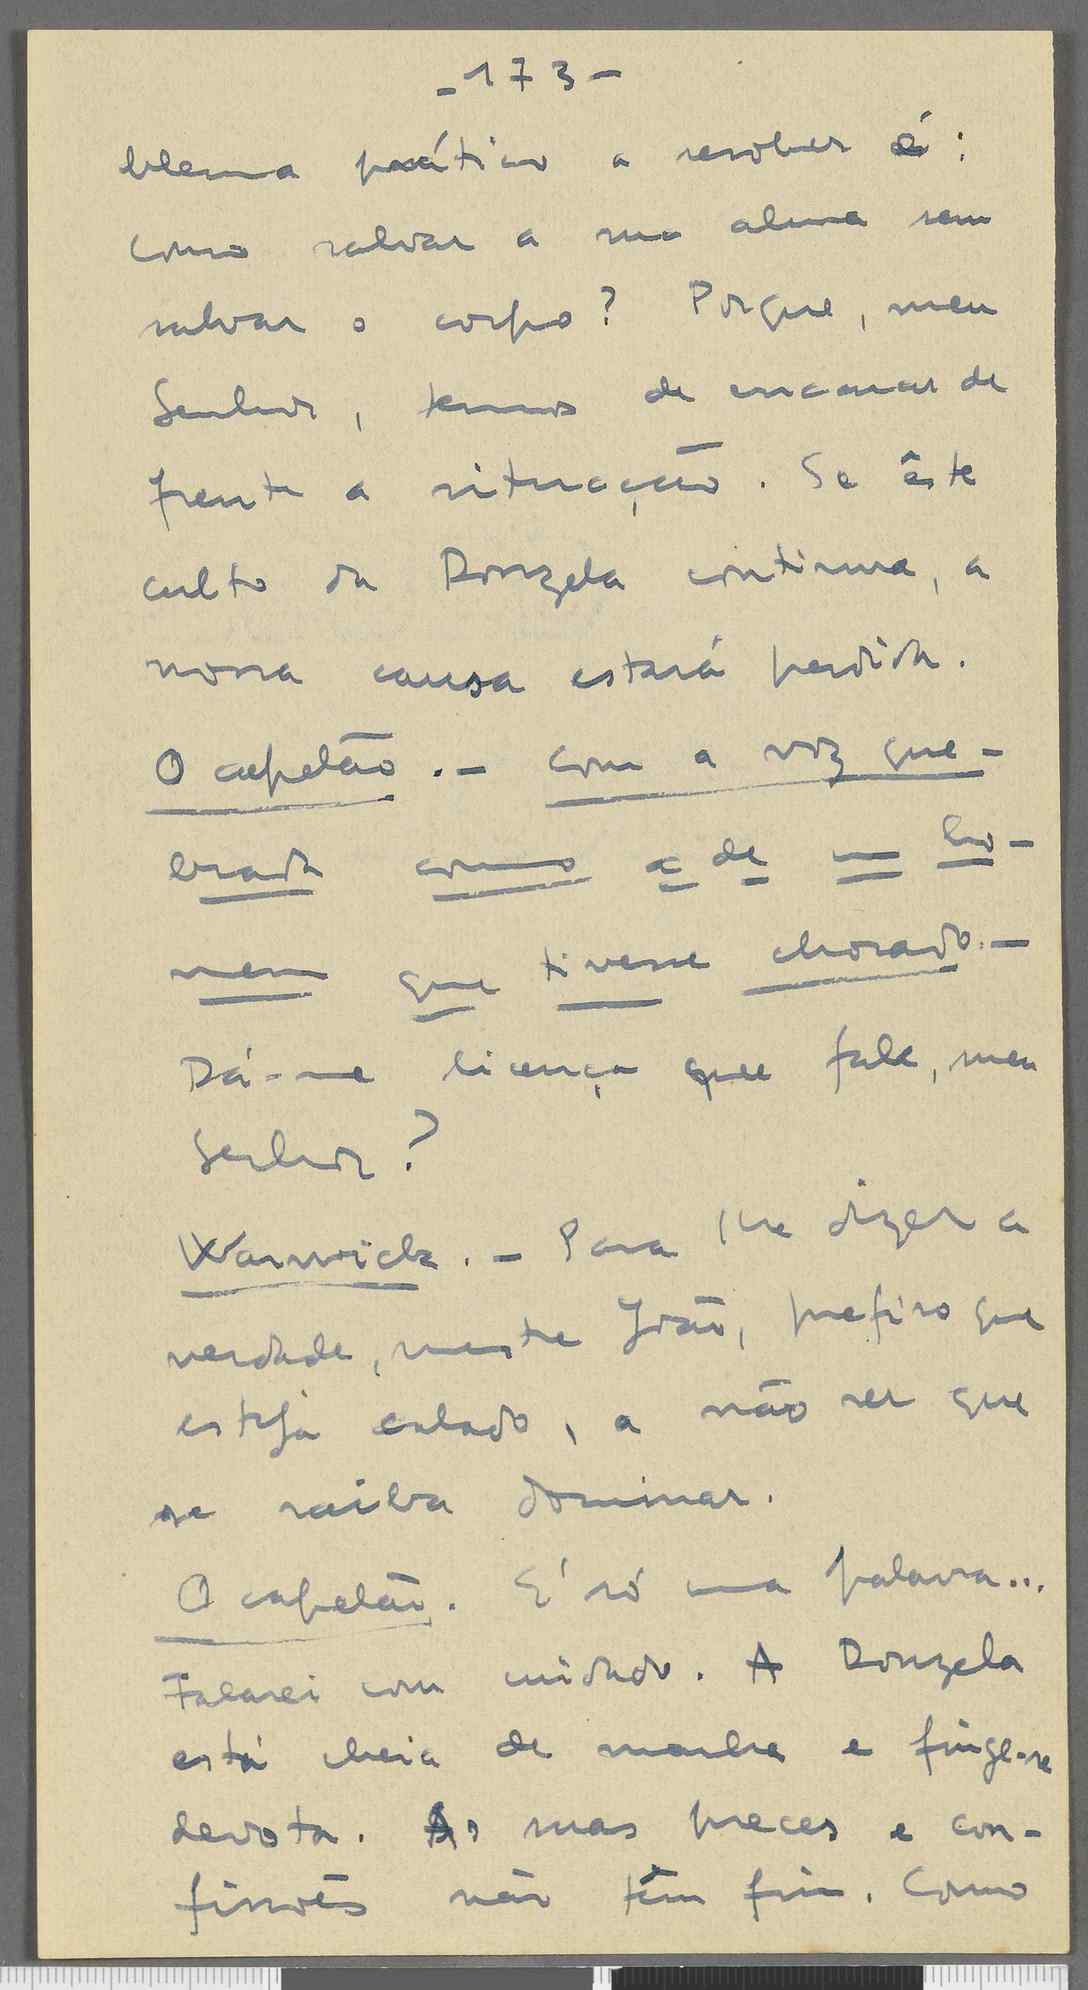 - 173 -
blema prático a resolver é:
como salvar a sua alma sem
salvar o corpo? Porque, meu
Senhor, temos de encarar de
frente a situação. Se êste
culto da Donzela continua, a
nossa causa estará perdida.
O capelão. - com a voz que-
brada como a de um ho-
mem que tivesse chorado. -
Dá-me licença que fale, meu
Senhor?
Warwick. - Para lhe dizer a
verdade, mestre João, prefiro que
esteja calado, a não ser que
se saiba dominar.
O capelão. É só uma palavra...
Falarei com cuidado. A Donzela
está cheia de manha e finge-se
devota. As suas preces e con-
fissões não têm fim. Como